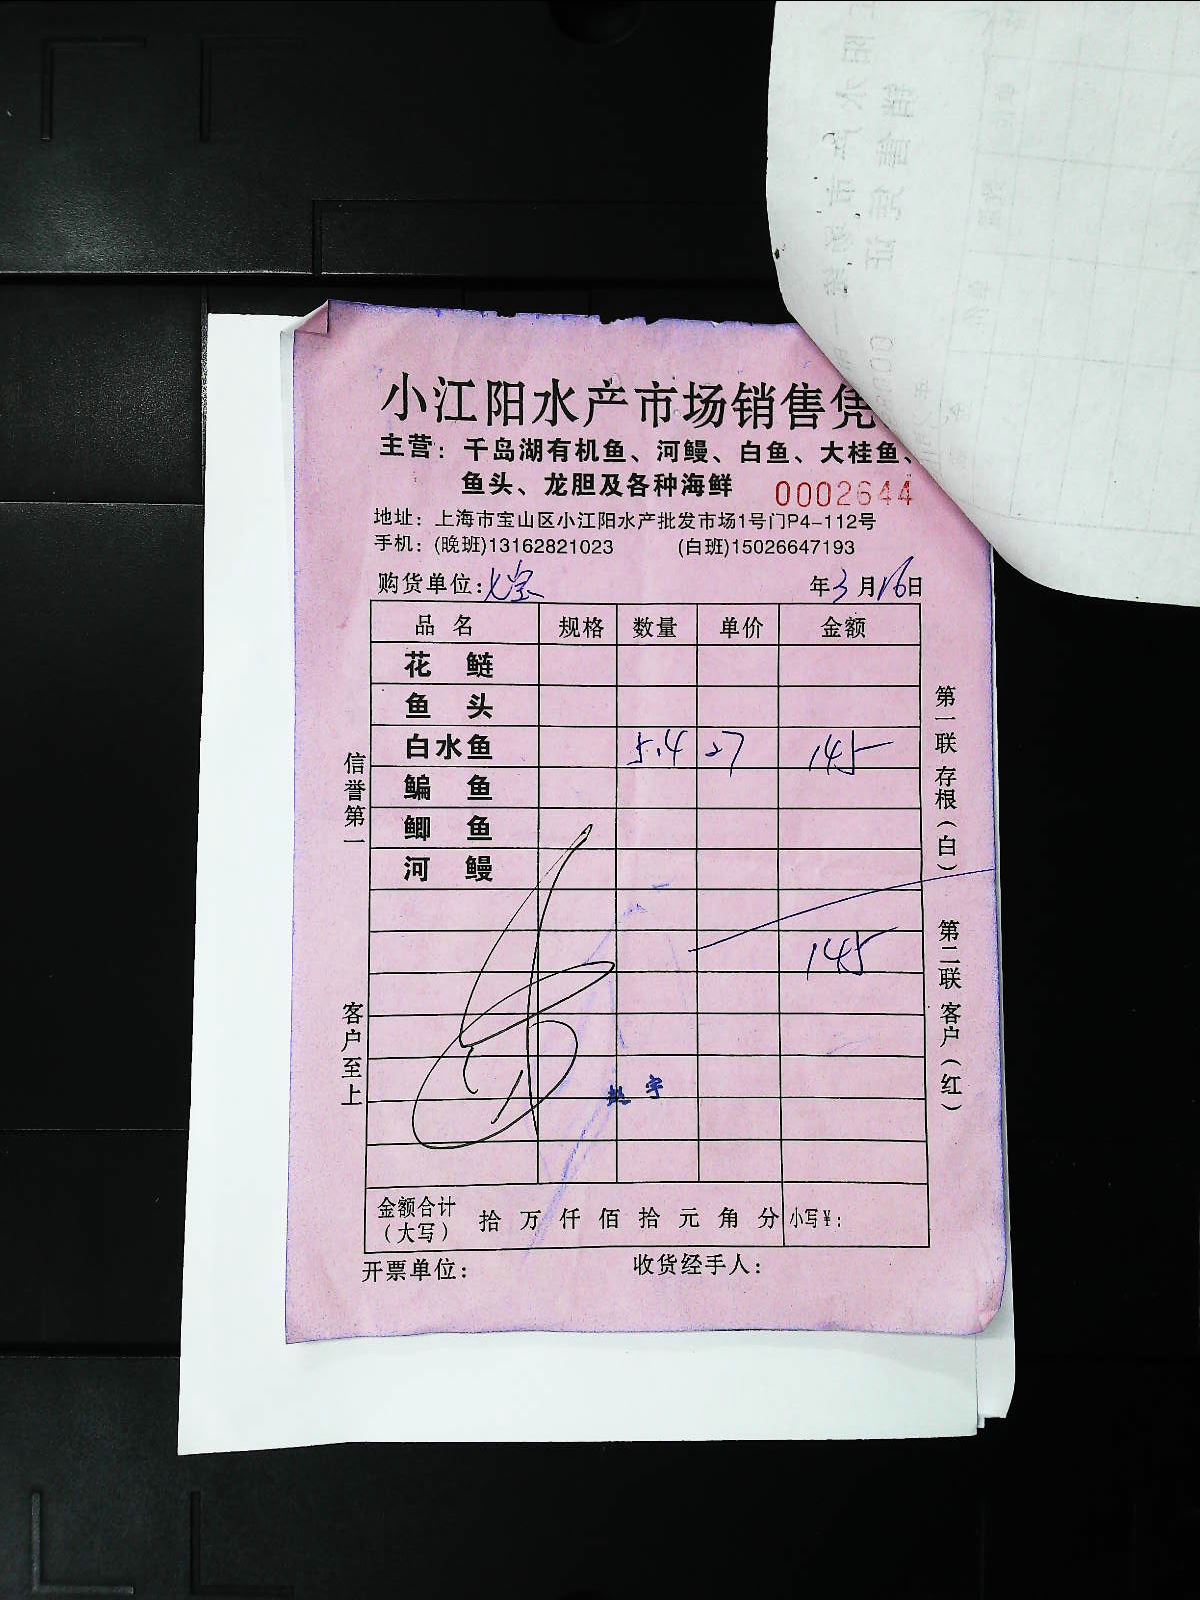 小江阳水产市场销售凭
主营：千岛湖有机鱼、河鳗、白鱼、大桂鱼、
鱼头、龙胆及各种海鲜 0002644
地址：上海市宝山区小江阳水产批发市场1号门P4-112号
手机：(晚班)13162821023 (白班)15026647193
购货单位： 年3月16日
品名 规格 数量 单价 金额
花鲢
鱼头
白水鱼 5.4 27 145
鳊鱼
鲫鱼
河鳗
145
信誉第一
客户至上
第一联存根(白)
第二联客户(红)
金额合计(大写) 拾万仟佰拾元角分 小写¥：
开票单位： 收货经手人：